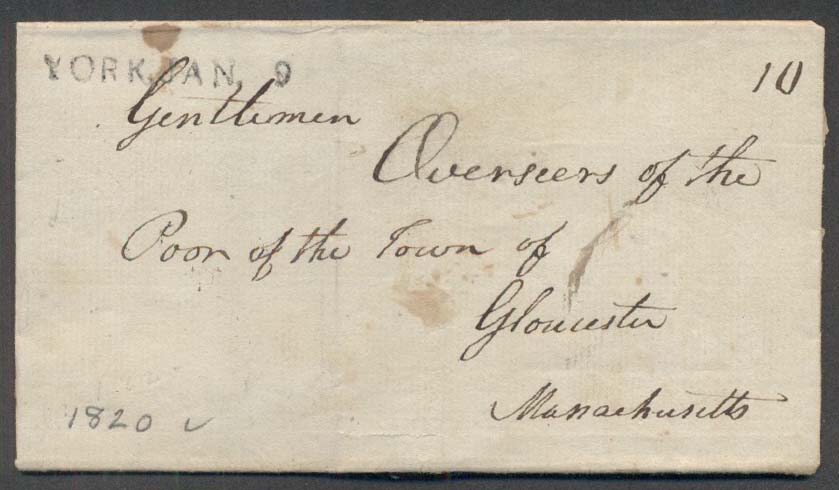 YORK JAN. 9
10
Gentlemen
Overseers of the
Poor of the Town of
Gloucester
Massachusetts
1820